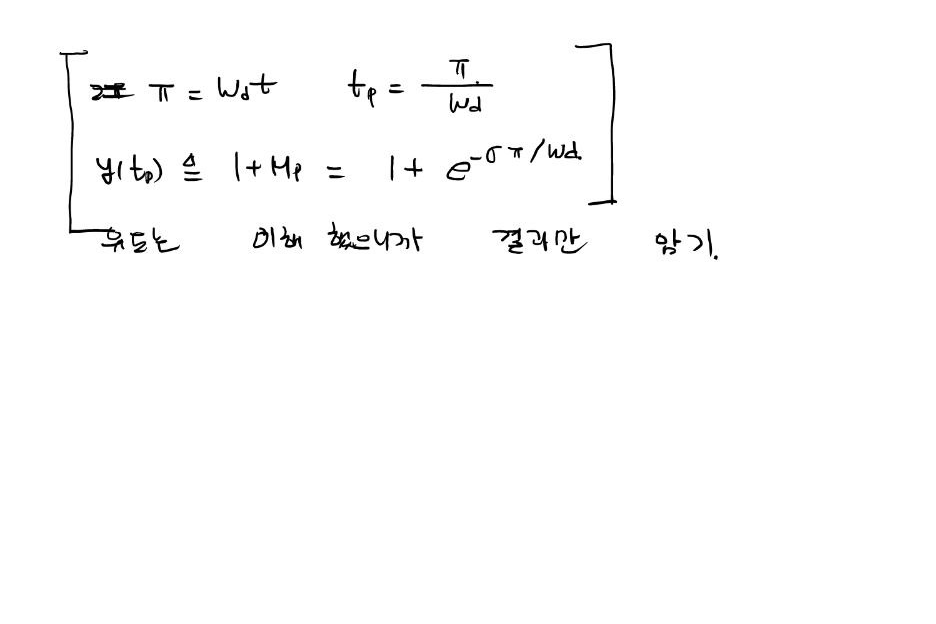 π = Wdt tp = π/Wd
y(tp) ≜ 1+Mp = 1+ e^-σπ/Wd
유도는 이해 했으니까 결과만 암기.